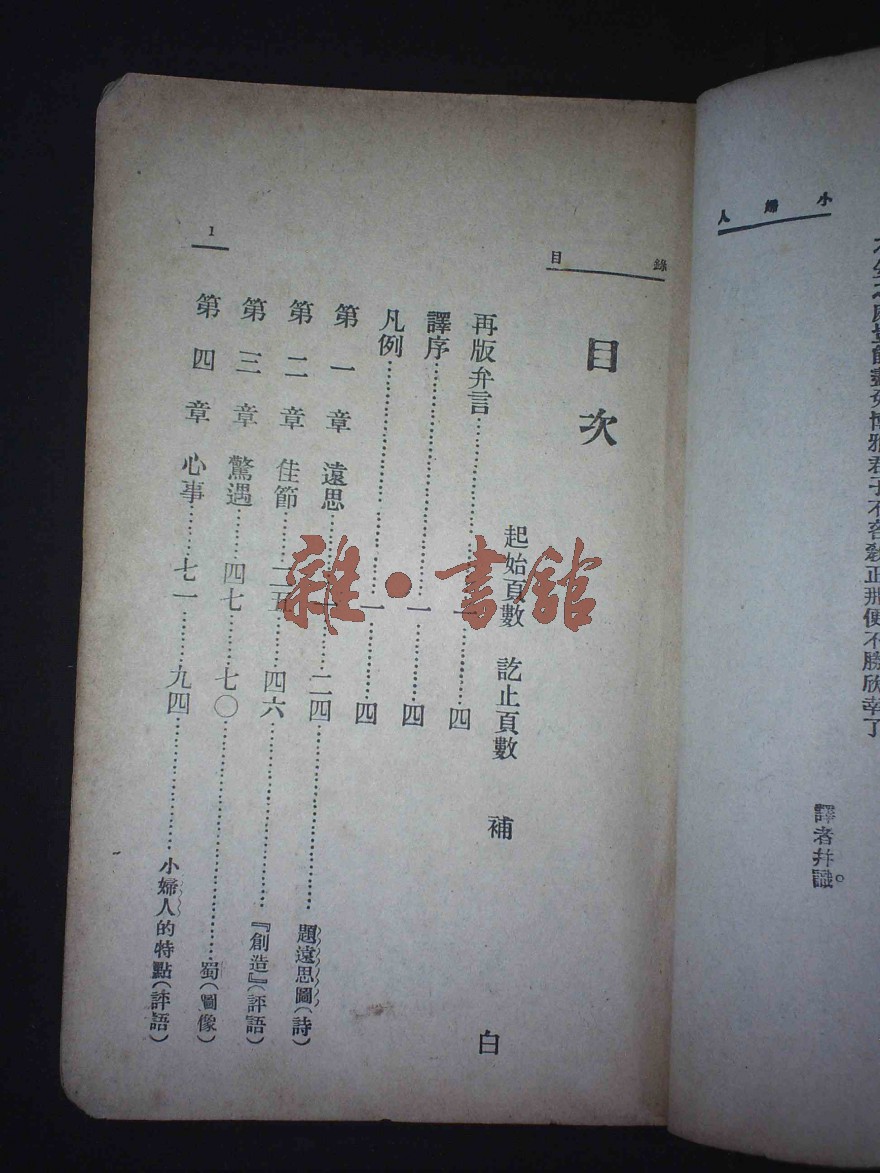 小婦人
譯者幷識。
錄目
目次
起始頁數 訖止頁數 補白
再版弁言……一……四
譯序……一……四
凡例……一……四
第一章 遠思……一……二四……題遠思圖(詩)
第二章 佳節……二五……四六……『創造』(評語)
第三章 驚遇……四七……七〇……蜀(圖像)
第四章 心事……七一……九四……小婦人的特點(評語)
1
雜·書館